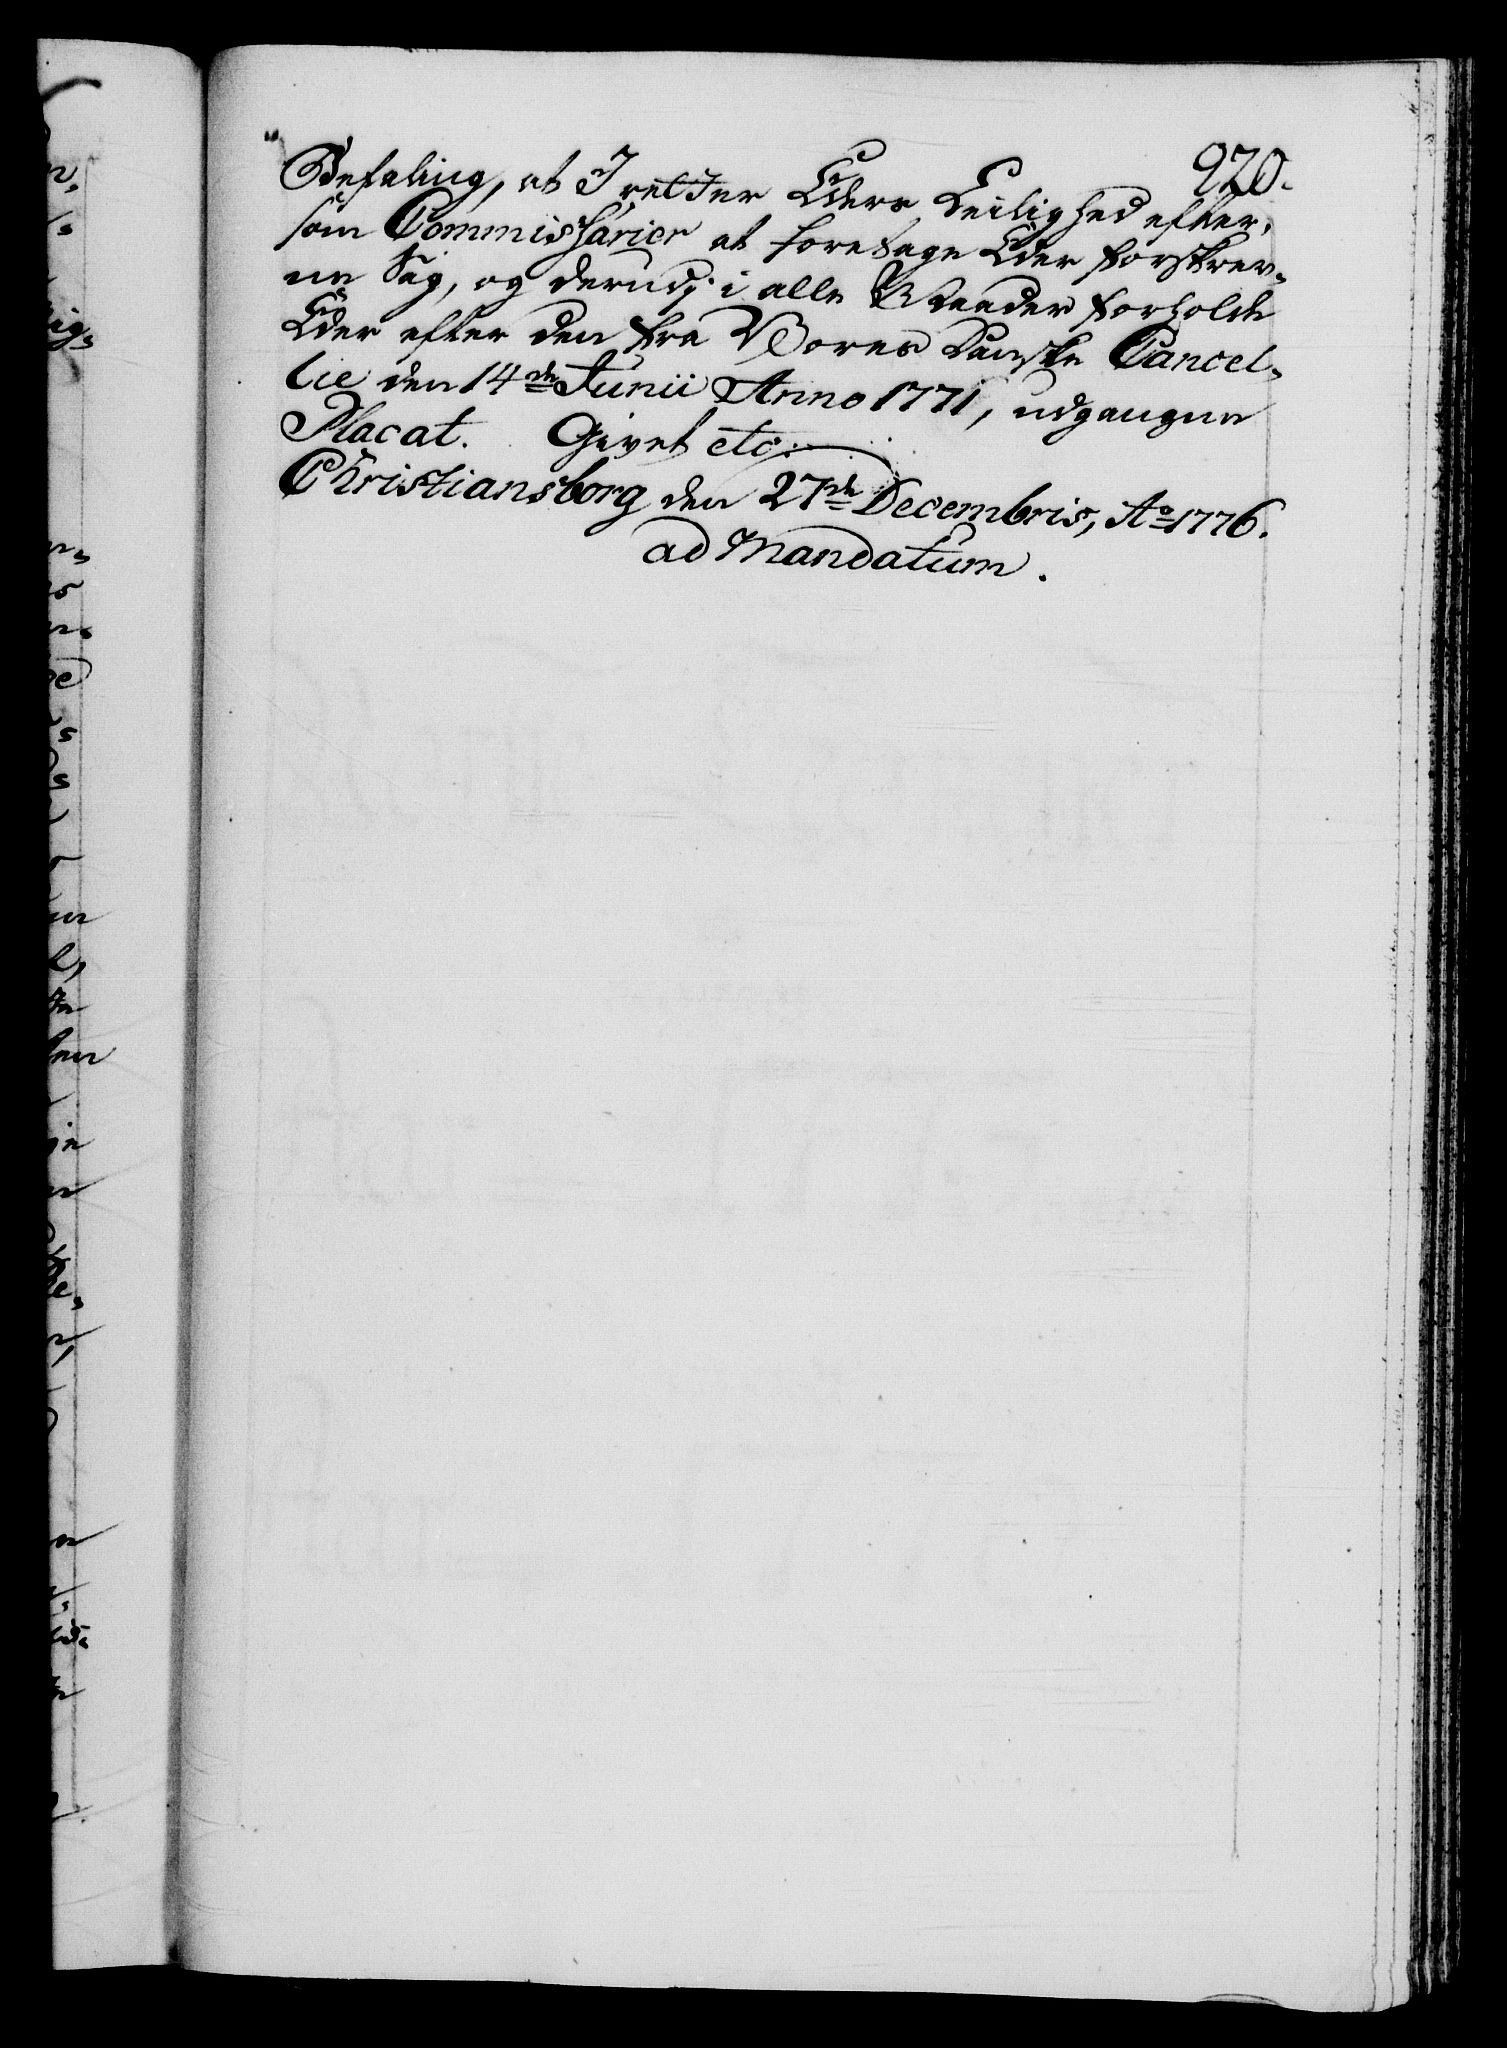 920.
Befaling, at I retter Eders Leilighed efter,
som Commissarier at foretage Eder forskrev-
ne Sag, og derudj i alle Maader forholde
Eder efter den fra Vores Danske Cancel-
lie den 14de Junii Anno 1771, udgangne
Placat. Givet etc:
Christiansborg den 27de Decembris, Ao 1776.
ad Mandatum.